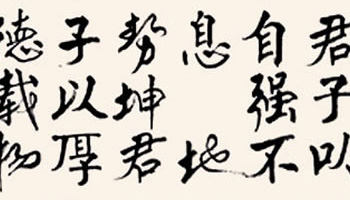 君子以
自强不
息地
势坤君
子以厚
德载物